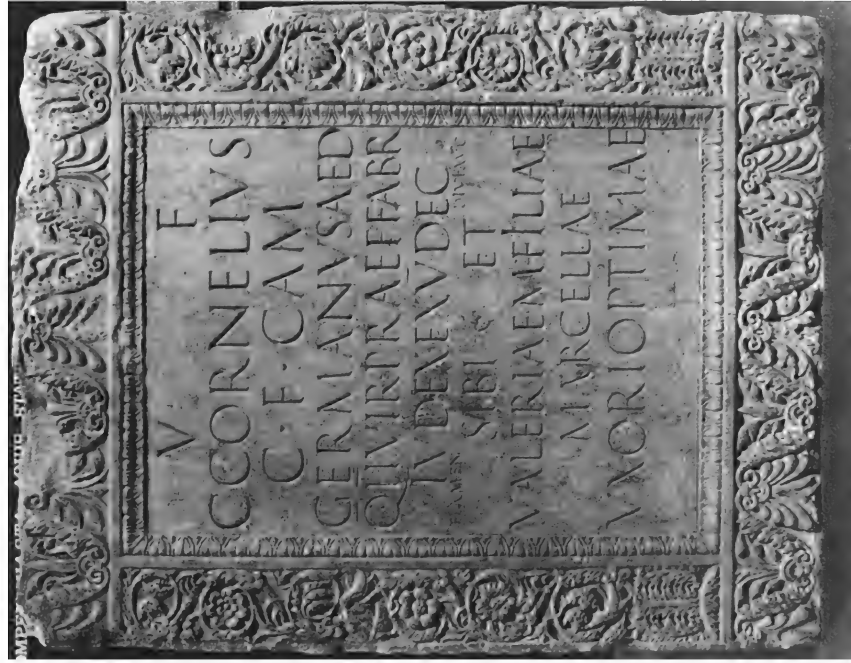 V F
C CORNELIVS
C·F·CAM
GERMANVS AED
Q II VIR PRAEF FABR
IVDEX EX V DEC
FLAMEN
SIBI ET
VALERIAE M FILIAE
MARCELLAE
VXORI OPTIMAE